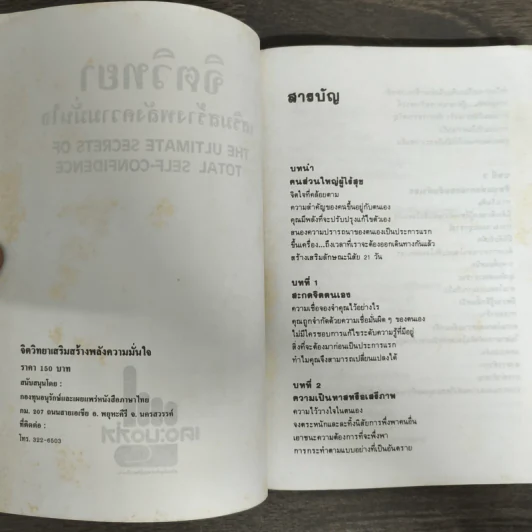 จิตวิทยา
เสริมสร้างพลังความมั่นใจ
THE ULTIMATE SECRETS OF
TOTAL SELF-CONFIDENCE
จิตวิทยาเสริมสร้างพลังความมั่นใจ
ราคา 150 บาท
สนับสนุนโดย :
กองทุนอนุรักษ์และเผยแพร่หนังสือภาษาไทย
กม. 207 ถนนสายเอเซีย อ. พยุหะคีรี จ. นครสวรรค์
ที่ติดต่อ :
โทร. 322-6503
สารบัญ
บทนำ
คนส่วนใหญ่ผู้ไร้สุข
จิตใจที่คล้อยตาม
ความสำคัญของคนขึ้นอยู่กับตนเอง
คุณมีพลังที่จะปรับปรุงแก้ไขตัวเอง
สนองความปรารถนาของตนเองเป็นประการแรก
ขึ้นเครื่อง...ถึงเวลาที่เราจะต้องออกเดินทางกันแล้ว
สร้างเสริมลักษณะนิสัย 21 วัน
บทที่ 1
สะกดจิตตนเอง
ความเชื่อของจำคุณไว้อย่างไร
คุณถูกจำกัดด้วยความเชื่อมั่นผิด ๆ ของตนเอง
ไม่มีใครชอบการแก้ไขระดับความรู้ที่มีอยู่
สิ่งที่จะต้องมาก่อนเป็นประการแรก
ทำไมคุณจึงสามารถเปลี่ยนแปลงได้
บทที่ 2
ความเป็นทาสหรือเสรีภาพ
ความไว้วางใจในตนเอง
จงตระหนักและละทิ้งนิสัยการพึ่งพาคนอื่น
เอาชนะความต้องการที่จะพึ่งพา
การกระทำตามแบบอย่างที่เป็นอันตราย